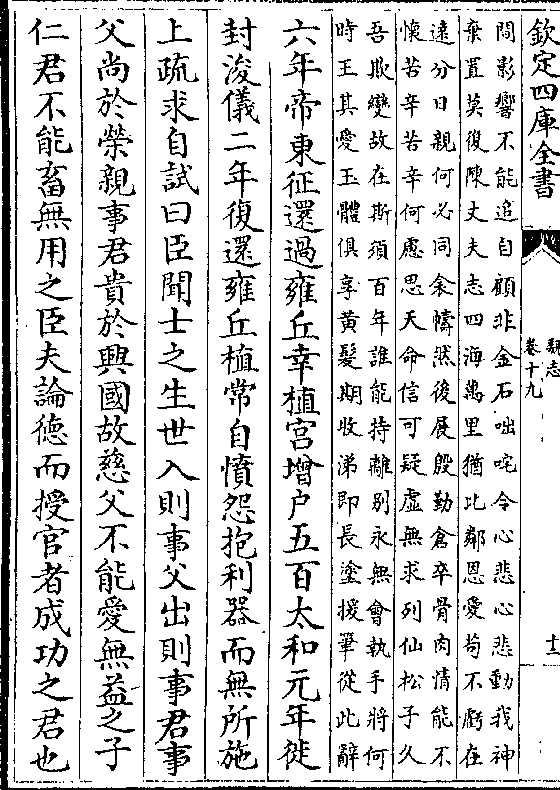 欽定四庫全書
魏志
卷十九
間影響不能追自顧非金石咄咤令心悲心悲動我神
棄置莫復陳丈夫志四海萬里猶比鄰恩愛苟不虧在
遠分日親何必同衾幬然後展殷勤倉卒骨肉情能不
懷苦辛苦辛何慮思天命信可疑虛無求列仙松子久
吾欺變故在斯須百年誰能持離別永無會執手將何
時王其愛玉體俱享黃髮期收涕即長塗援筆從此辭
六年帝東征還過雍丘幸植宫增户五百太和元年徙
封浚儀二年復還雍丘植常自憤怨抱利器而無所施
上疏求自試曰臣聞士之生世入則事父出則事君事
父尚於榮親事君貴於興國故慈父不能愛無益之子
仁君不能畜無用之臣夫論德而授官者成功之君也